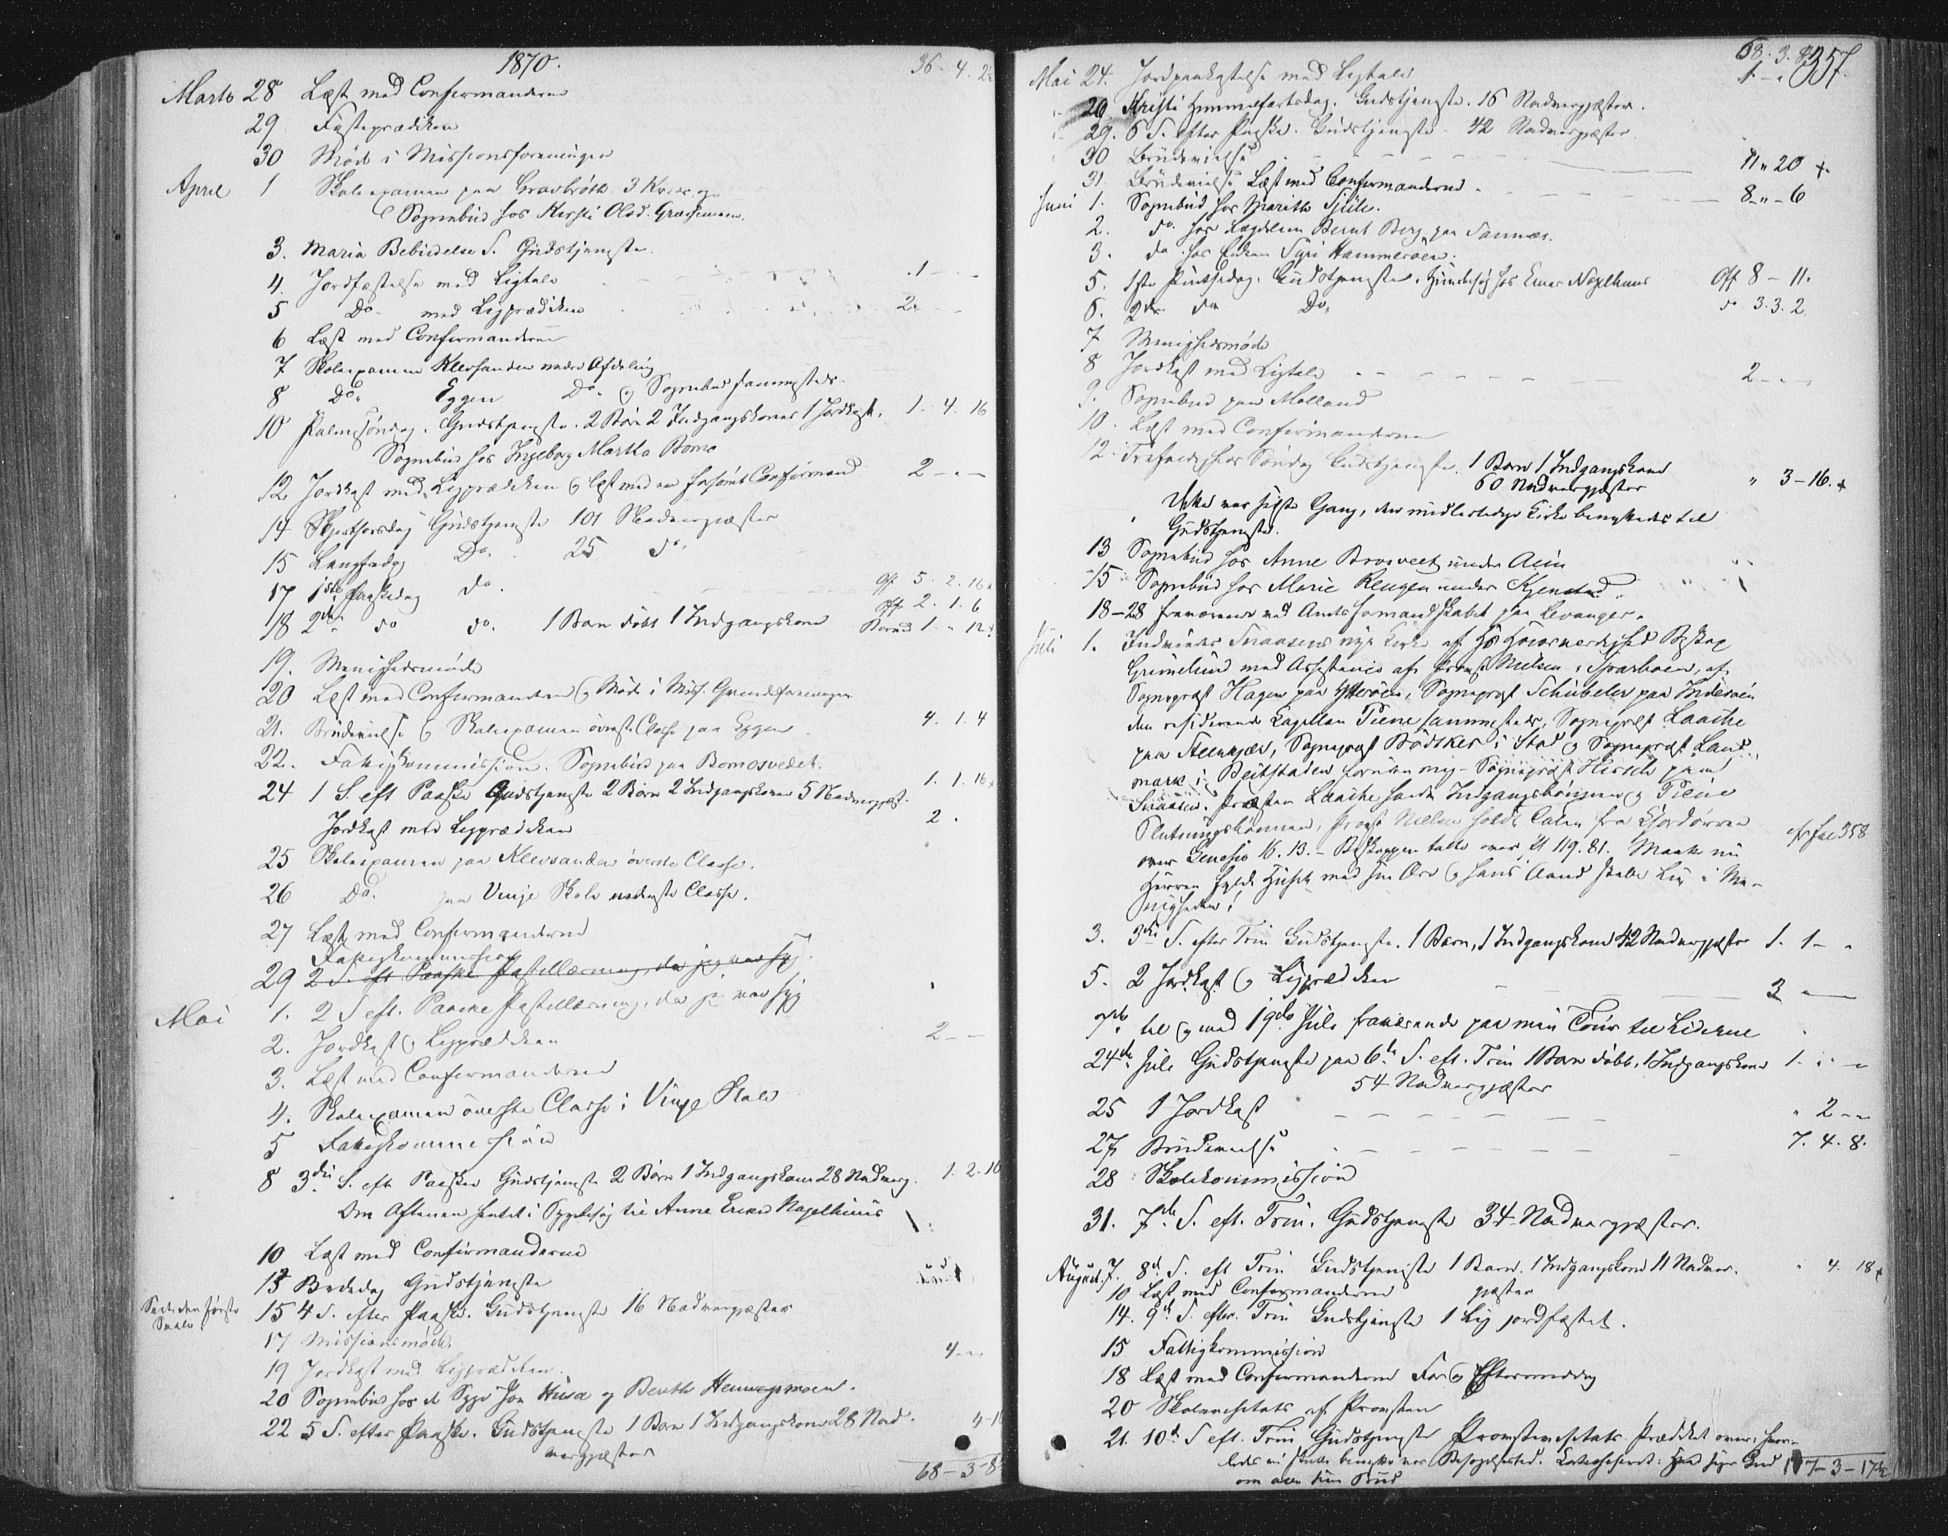 1870.
36-4-2
Marts 28 Læst med Confirmanderne
29 Fasteprædiken
30 Møde i Missionsforeningen
April 1 Skoleexamen paa Gravbrøth. 3 Kreds og
Sognebud hos Kirsti Olsd.
3. Maria Bebudelse S. Gudstjeneste.
4. Jordfæstelse med Ligtale 1 - -
5 Do. med Ligprædiken 2. -
6 Læst med Confirmanderne
7 Skoleexamen Klevsanden nedre Afdeling
8 Do. Eggen Do. & Sognebud sammesteds.
10 Palmesøndag. Gudstjeneste. 2 Børn 2 Indgangskoner 1 Jordkast. 1. 4. 16
Sognebud hos Ingeborg Martha Bomo
12. Jordkast med Ligprædiken & læst med en forsømt Confirmand 2 - -
14 Skjærthorsdag Gudstjeneste 101 Nadvergjæster
15 Langfredag Do. 25 do.
17 1ste Paaskedag do. Off 5. 2. 16
18 2den do do. 1 Barn døbt 1 Indgangskone Off 2. 1. 6
Barnet 1 - 12
19. Menighedsmøde
20 Læst med Confirmanderne & Møde i Miss. Qvindeforeningen
21. Brudevielse & Skoleexamen øverste Classe paa Eggen 4. 1. 4
22. Fattigkommission. Sognebud paa Bomosvedet.
24 1 S. eft Paaske Gudstjeneste 2 Børn 2 Indgangskoner 5 Nadvergjæst. 1. 1. 16
Jordkast med Ligprædiken 2.
25 Skoleexamen paa Klevsanden øverste Classe.
26 Do. paa Vinje Skole nederste Classe.
27 Læst med Confirmanderne
Fattigkommission
29 2 S. eft Paaske Postellæsning, da jeg var syg.
Mai 1. 2 S eft. Paaske Postellæsning, da jeg var syg
2. Jordkast & Ligprædiken 2 - -
3. Læst med Confirmanderne
4. Skoleexamen øverste Classe i Vinje Skole
5 Fattigkommission
8 3die S. eft Paaske Gudstjeneste 2 Børn 1 Indgangskone 28 Nadverg. 1. 2. 16
Om Aftenen hentet i Sygebesøg til Anne Nagelhuus
10 Læst med Confirmanderne
13 Bededag Gudstjeneste
15 4 S. efter Paaske. Gudstjeneste 16 Nadvergjæster
17 Missionsmøde
19 Jordkast med Ligprædiken. 4 - -
20 Sognebud hos d. Syge Jon Husa og Berith Hemmegsmoen.
22 5 S. efter Paaske. Gudstjeneste 1 Barn 1 Indgangskone 28 Nad- 4-16
vergjæster
68-3-8
68-3-8
357.
Mai 24. Jordpaakastelse med Ligtale 1 -
26 Kristi Himmelfartsdag. Gudstjeneste. 16 Nadvergjæster.
29. 6 S. efter Paaske. Gudstjeneste 42 Nadvergjæster.
30 Brudevielse 11 " 20
31. Brudevielse Læst med Confirmanderne. 8 - " - 6
Juni 1. Sognebud hos Marith
2. do. hos Bernt Berg paa Sannæs.
3. do. hos Enken Siri Hammerøen.
5. 1ste Pintsedag. Gudstjeneste. hos Einar Nagelhuus Off 8 - 11.
6. 2den do Do. do 3. 3. 2
7 Menighedsmøde
8 Jordkast med Ligtale 2 - -
9. Sognebud paa Molland
10. Læst med Confirmanderne
12. Trefoldigheds Søndag Gudstjeneste. 1 Barn 1 Indgangskone " 3-16.
60 Nadvergjæster
Dette var sidste Gang, den midlertidige Kirke benyttedes til
Gudstjeneste.
13 Sognebud hos Anne Brosveet under Aein
15 Sognebud hos Marie Reugen under Kjenstad.
18-28 fraværende ved Amtsformandskabet paa Levanger.
Juli 1. Indviedes Snaasens nye Kirke af Hs Høiærværdighed Biskop
Grimelund med Assistance af Provst Nielsen i Sparboen, af
Sognepræst Hagen paa Ytterøen, Sognepræst Schübeler paa Inderøen
den residerende Kapellan Piene sammesteds, Sognepræst Laache
paa Steenkjær, Sognepræst Bødtker i Stod & Sognepræst Land-
mark i Beitstaden foruden mig - Sognepræst Hirsch paa
Snaasen. Præsten Laache holdt Indgangsbønnen & Piene
Slutningsbønnen, Provst Nielsen holdt Talen fra Chordøren
over Genesis 16. 13. - Biskoppen talte over 119. 81. cfr fol 358
Herren fylde Huset med sin Ære & hans Aand skabe Liv i Me-
nigheden!
3. 3die S. efter Trin Gudstjeneste. 1 Barn, 1 Indgangskone 42 Nadvergjæster 1. 1 -
5. 2 Jordkast & Ligprædiken 3 - -
7de til & med 19de Juli fraværende paa min Tour til Lierne
24de Juli Gudstjeneste paa 6te S. eft. Trin 1 Barn døbt, 1 Indgangskone 1.
54 Nadvergjæster
25 1 Jordkast " 2 - -
27 Brudevielse 7. 4. 8.
28 Skolekommission
31. 7de S. eft. Trin. Gudstjeneste 34 Nadvergjæster.
August. 7. 8de S. eft Trin Gudstjeneste 1 Barn. 1 Indgangskone 11 Nadver- " 4. 18
10 Læst med Confirmanderne gjæster
14. 9de S. efter. Trin Gudstjeneste 1 Lig jordfæstet.
15 Fattigkommission
18 Læst med Confirmanderne For & Eftermiddag
20 Skolevisitats af Provsten
21. 10de S eft. Trin Gudstjeneste Provstevisitats. Prædiket over: hvor-
ledes vi skulle benytte vor Besøgelsestid. Gud 107-3-17